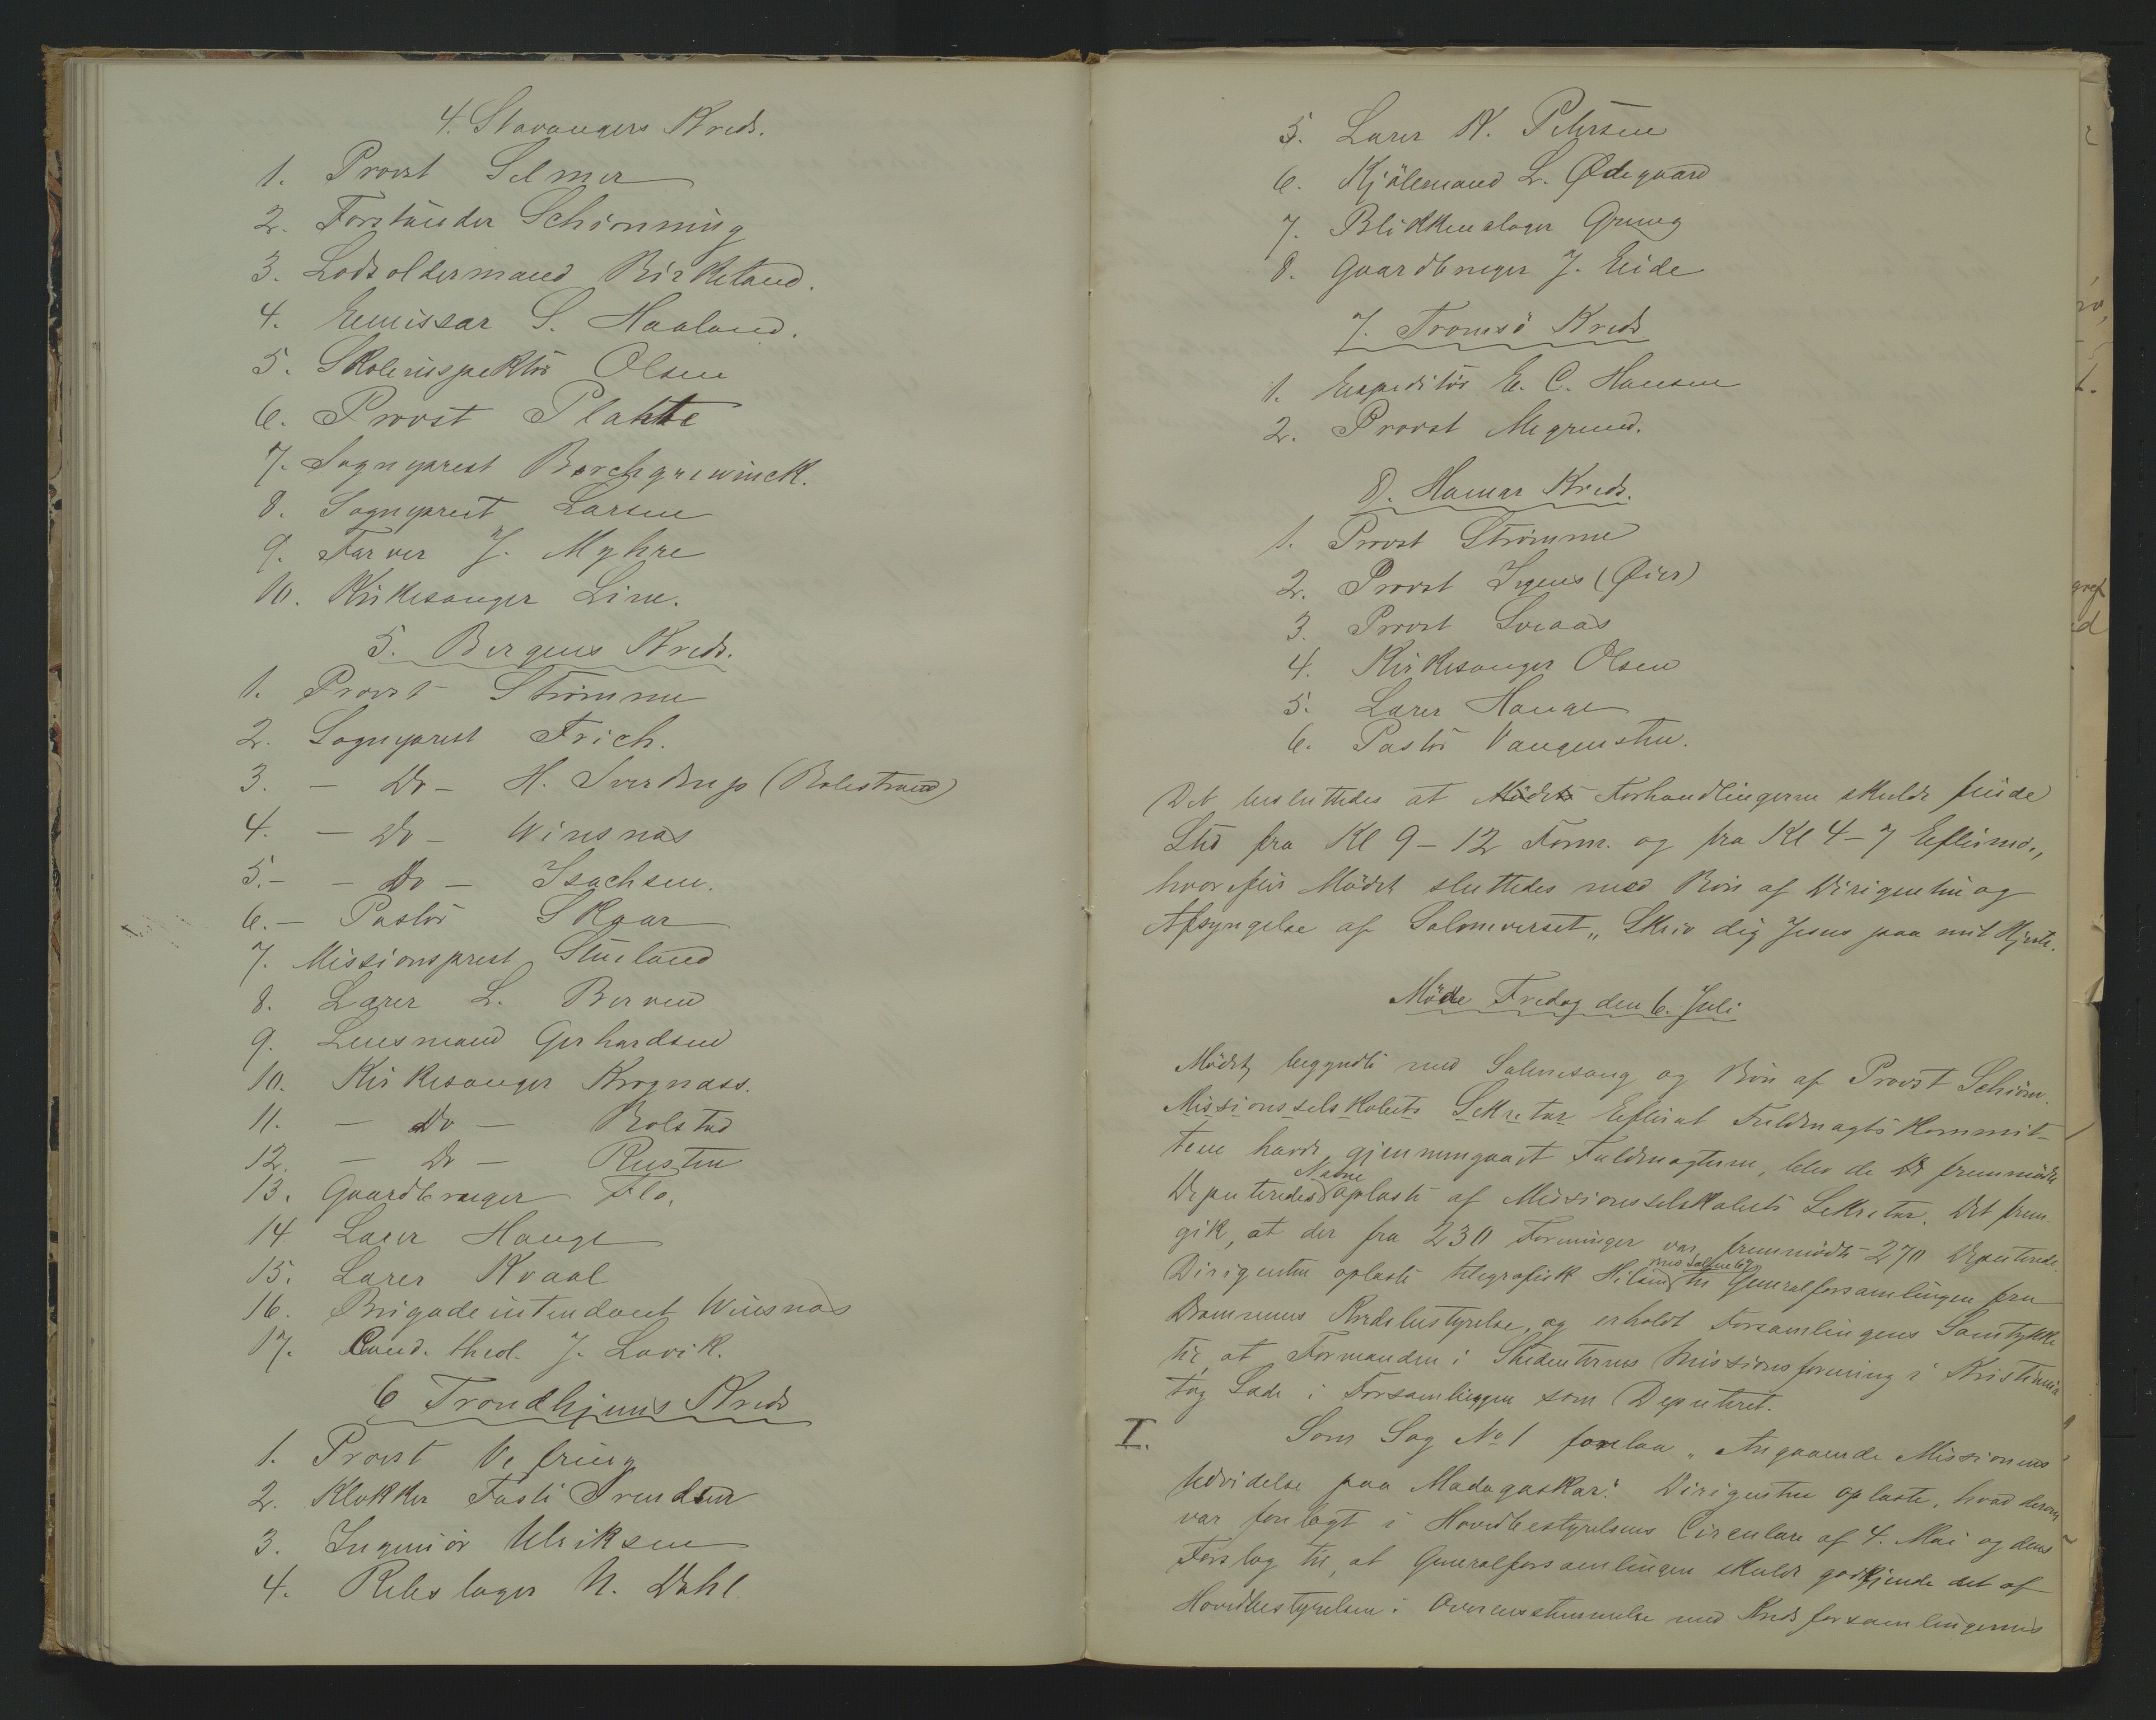 4. Stavangers Kreds.
1. Provst Selmer
2. Forstander Schirming
3. Lodsoldermand Birkeland.
4. Emissær S. Haaland.
5. Skoleinspektör Olsen
6. Provst Plahte
7. Sogneprest Borchgrewinck.
8. Sogneprest Larsen
9. Farver J. Myhre
10. Kirkesanger Lime.
5. Bergens Kreds.
1. Provst Strömme
2. Sogneprest Frich.
3. - Do - H. Sverdrup (Balestrand)
4. - Do - Winsnæs
5. - - Do - Isachsen.
6. - Pastor Skaar
7. Missionsprest Stueland
8. Lærer L. Berven
9. Lensmand Gerhardsen
10. Kirkesanger Krognæss.
11. - Do - Bolstad
12. - Do - Rusten
13. Gaardbruger Flo.
14 Lærer Hauge
15. Lærer Kvaal
16. Brigadeintendant Winsnæs
17. Cand. theol. J. Lavik.
6 Trondhjems Kreds
1. Provst Vefring
2. Klokker Fasti Svendsen
3. Ingeniör Ulriksen
4. Rebslager N. Dahl
5. Lærer K. Petersen
6. Kjölemand L. Ødegaard
7. Blikkenslager Grung
8. Gaardbruger J. Eide
7. Tromsö Kreds
1. Expeditör E. C. Hansen
2. Provst Mregrund.
8. Hamar Kreds.
1. Provst Strömme
2. Provst Irgens (Øier)
3. Provst Sveaas
4. Kirkesanger Olsen
5. Lærer Hauge
6. Pastor Vangensten.
Det besluttedes at Mödets Forhandlingerne skulde finde
Sted fra Kl 9-12 Form. og fra Kl 4-7 Efterm.,
hvorefter Mödet sluttedes med Bön af Dirigenten og
Afsyngelse af Salmeverset „Skriv dig Jesus paa mit Hjerte.
Möde Fredag den 6. Juli
Mödet begyndte med Salmesang og Bön af Provst Schiörn.
Missionsselskabets Sekretær Efterat Fuldmagtskommit-
teen havde gjennemgaaet Fuldmagterne, blev de fremmödte
Deputeredes Navne oplæste af Missionsselskabets Sekretær. Det frem-
gik, at der fra 230 Foreninger var fremmödt 270 Deputerede.
Dirigenten oplæste telegrafisk Hilsen med til Generalforsamlingen fra
Drammens Kredsbestyrelse, og erholdt Forsamlingens Samtykke
til, at Formanden i Studenternes Missionsforening i Kristiania
tog Sæde i Forsamlingen som Deputeret.
I. Som Sag No 1 forelaa „Angaaende Missionens
Udvidelse paa Madagaskar“. Dirigenten oplæste, hvad derom
var forelagt i Hovedbestyrelsens Circulære af 4. Mai og dens
Forslag til, at Generalforsamlingen skulde godkjende det af
Hovedbestyrelsen i Overensstemmelse med Kredsforsamlingernes